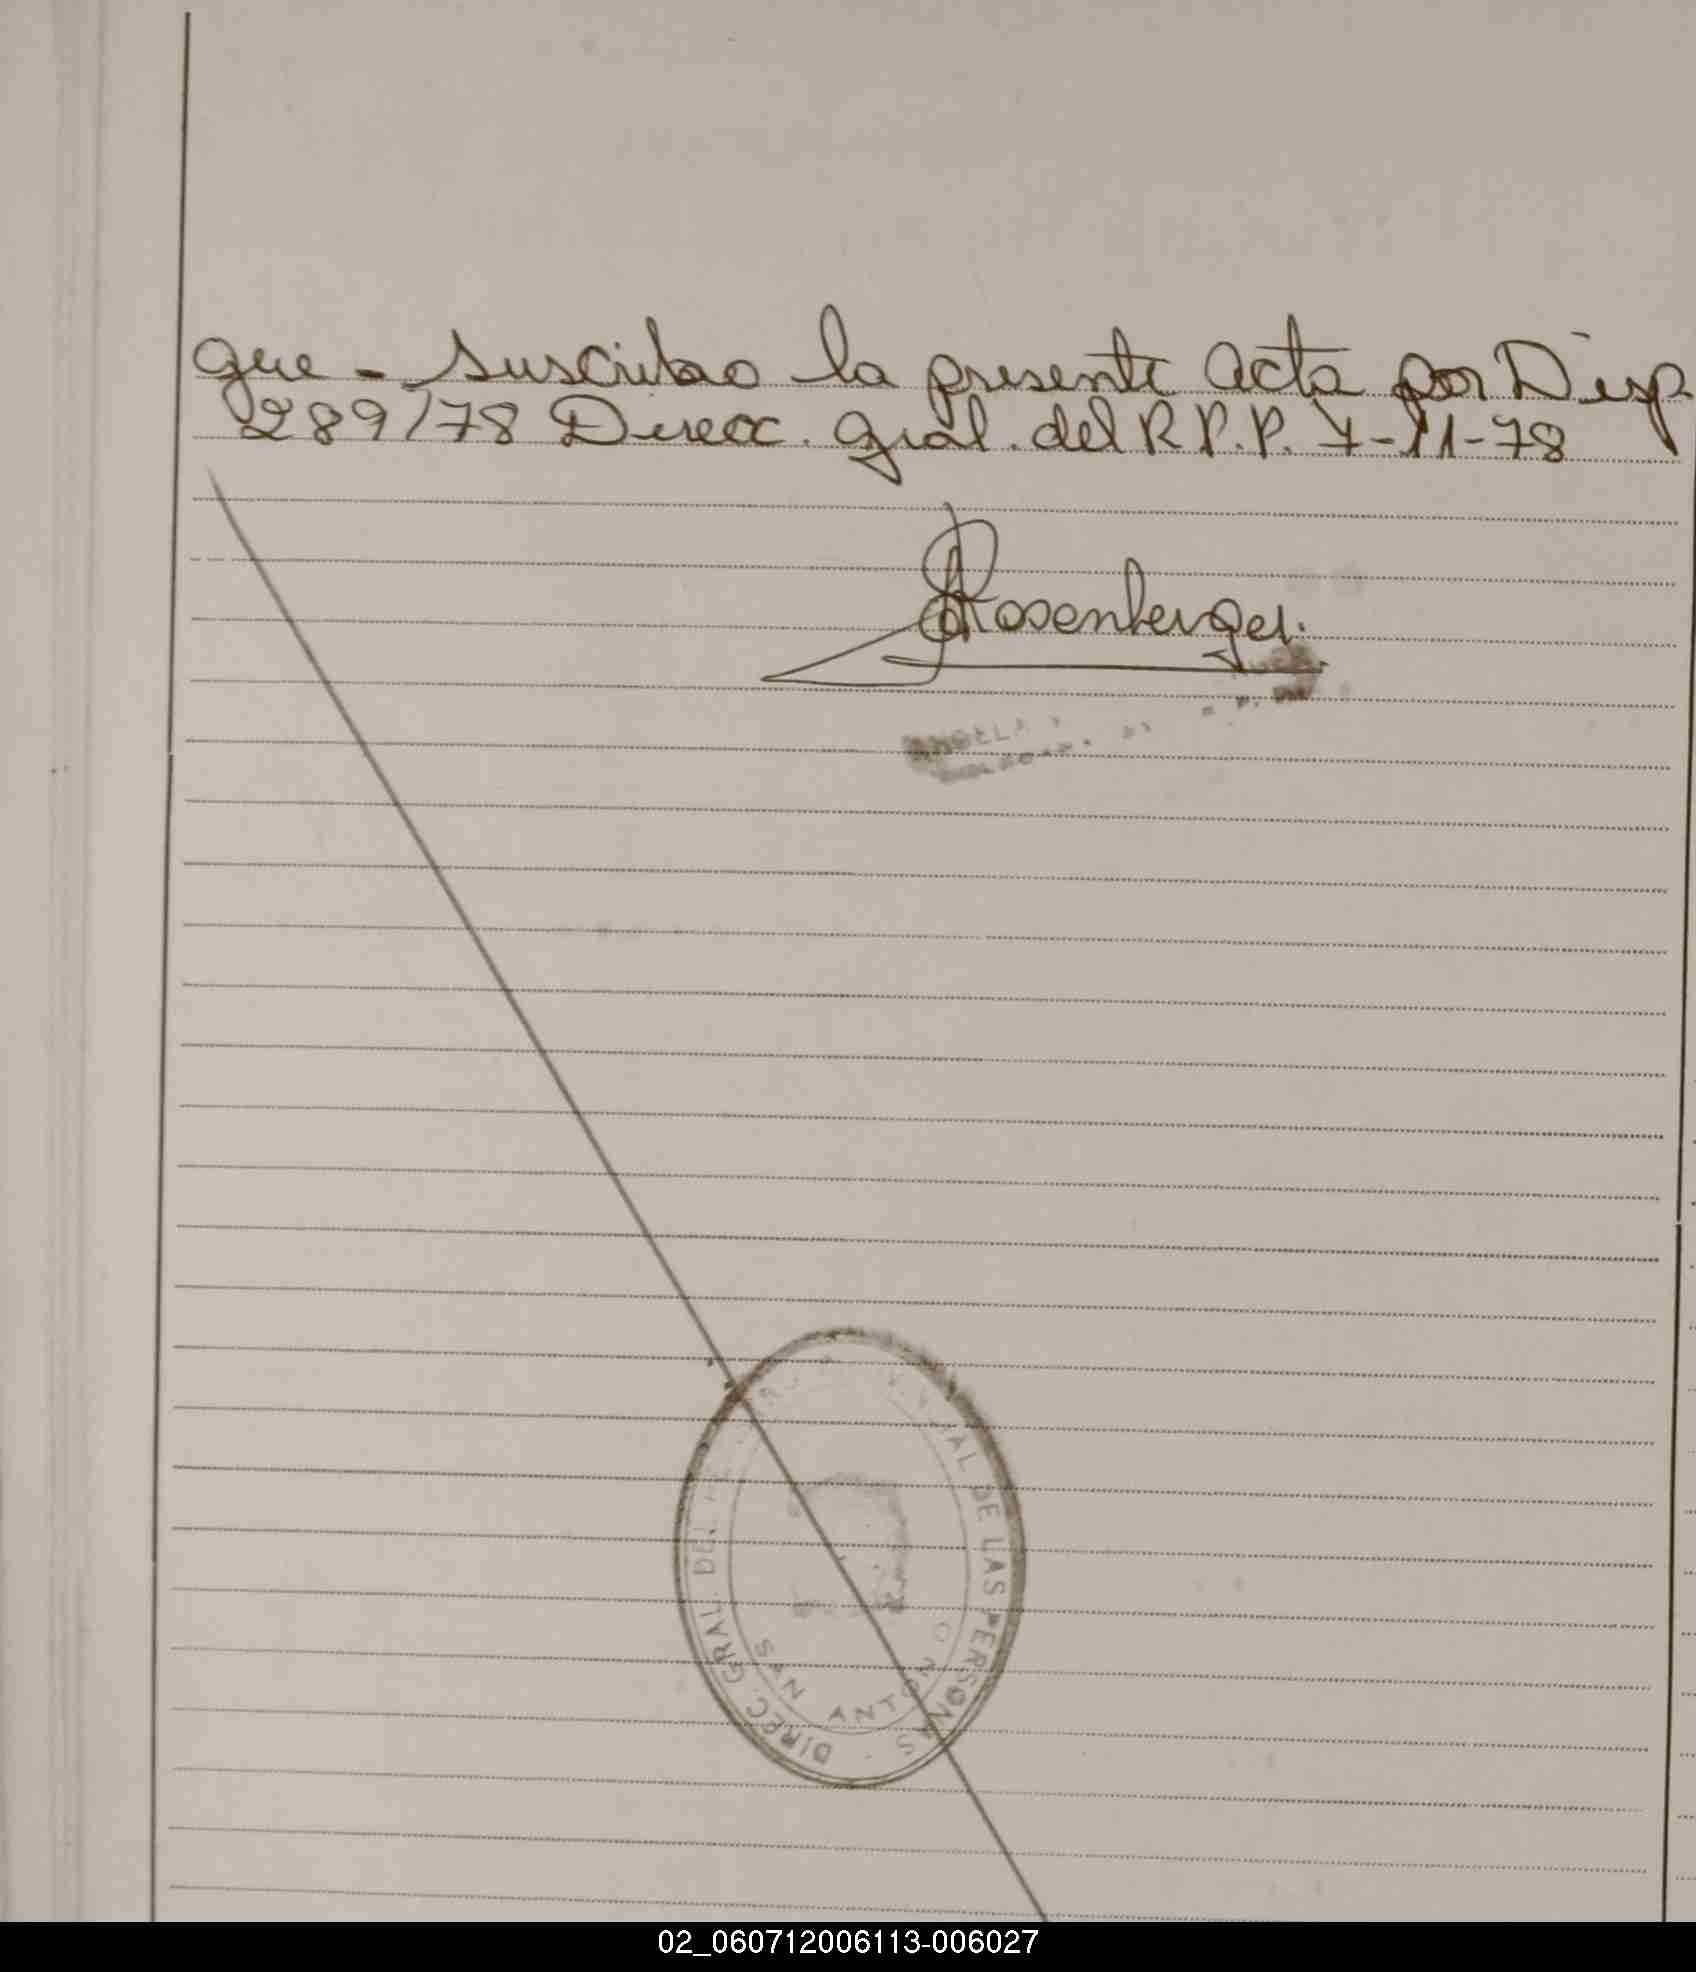 que - suscribo la presente acta por Disp
289/78 Direcc. Gral. del R.P.P. 7-11-78
Rosenberger.
ANGELA
DIREC. GRAL. DEL DE LAS PERSONAS
SAN ANTONIO
02_060712006113-006027